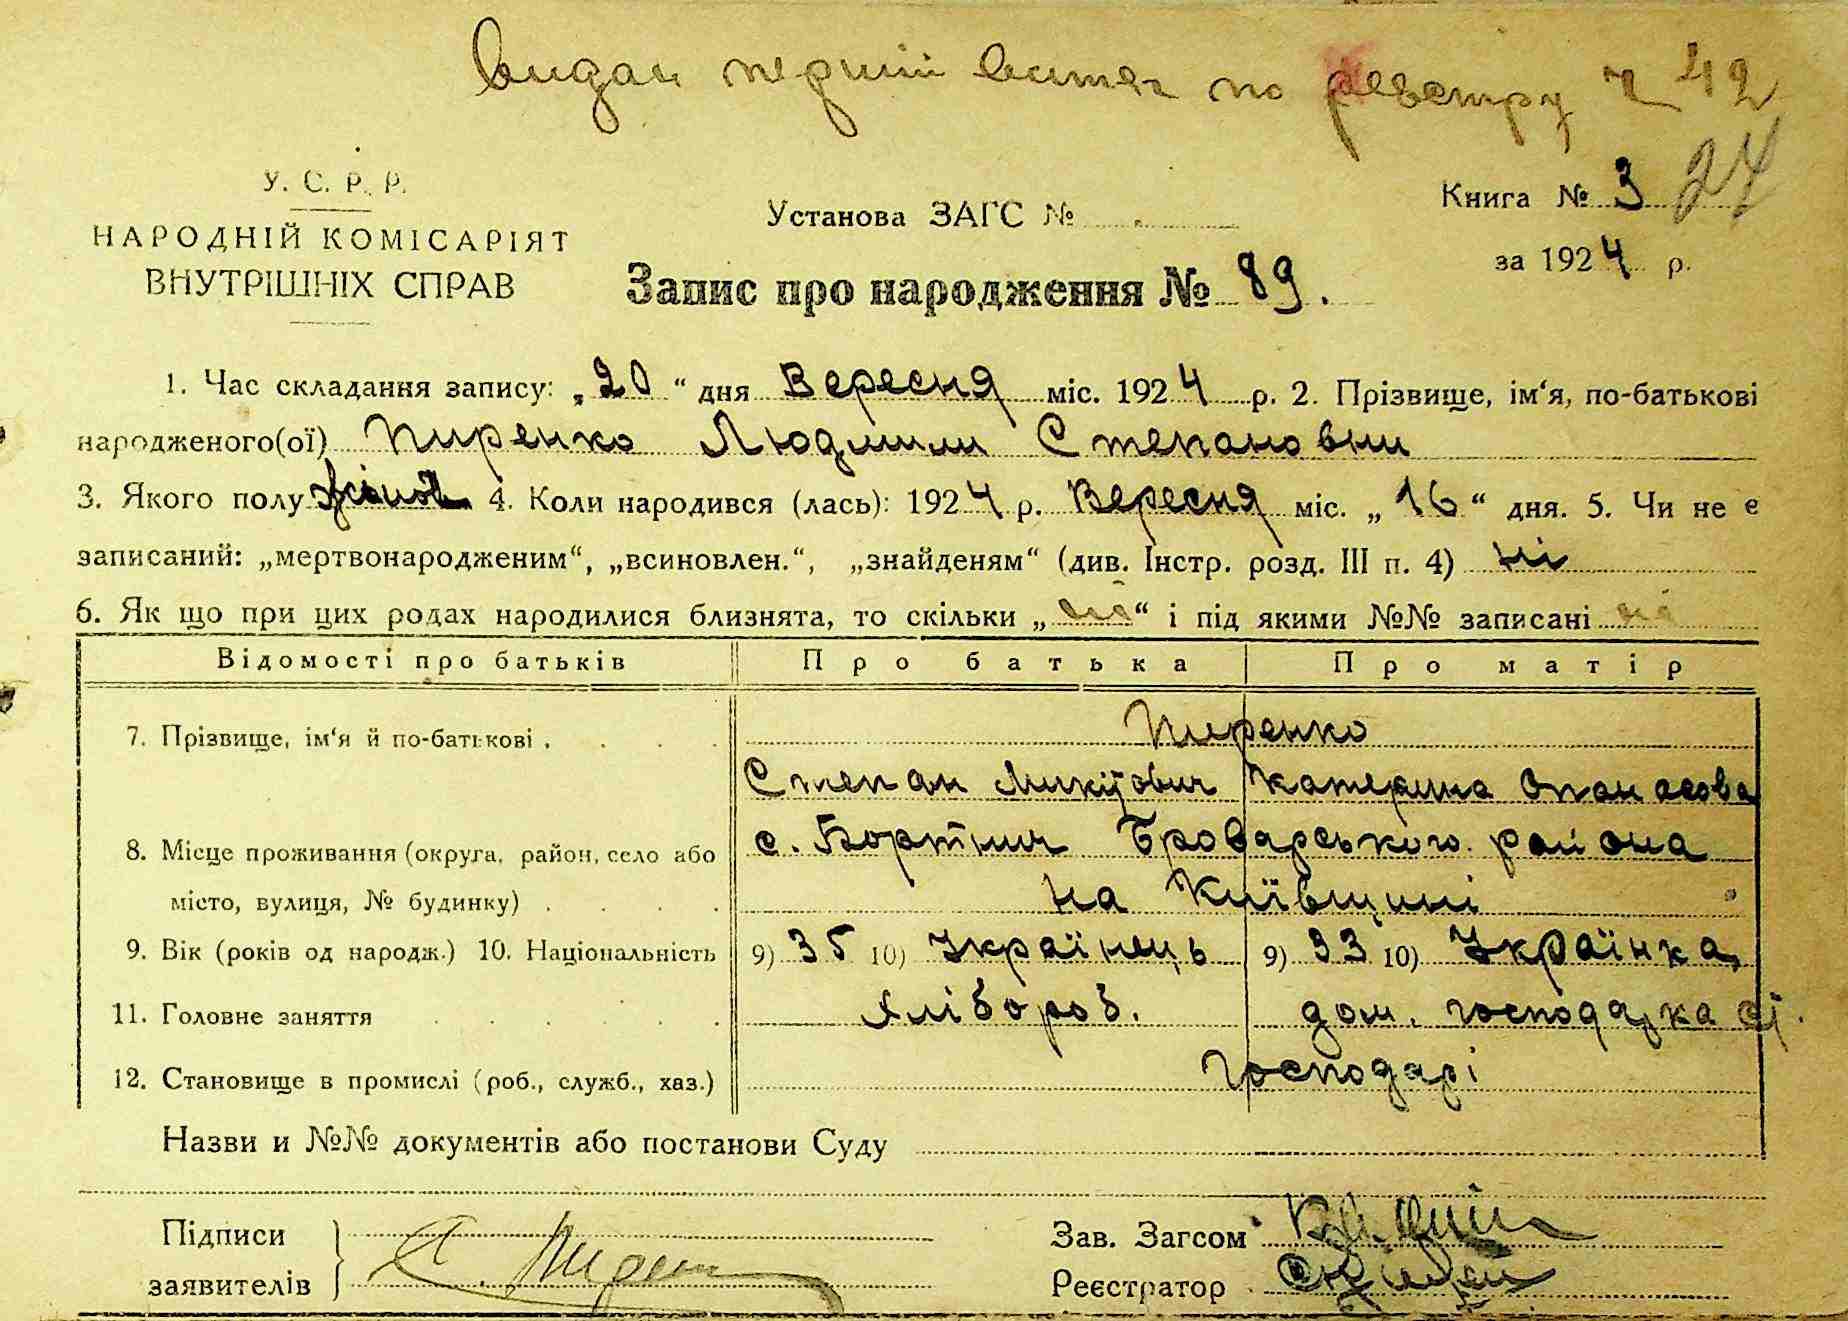 видан перший витяг по реєстру ч 42
У. С. Р. Р.
НАРОДНІЙ КОМІСАРІЯТ
ВНУТРІШНІХ СПРАВ
Установа ЗАГС №
Книга № 3 24
за 1924 р.
Запис про народження № 89.
1. Час складання запису: „20“ дня Вересня міс. 1924 р. 2. Прізвище, ім‘я, по-батькові
народженого(ої) Пиренко Людмили Степановни
3. Якого полу жіноч 4. Коли народився (лась): 1924 р. Вересня міс. „16“ дня. 5. Чи не є
записаний: „мертвонародженим“, „всиновлен.“, „знайденям“ (див. Інстр. розд. III п. 4) ні
6. Як що при цих родах народилися близнята, то скільки „ “ і під якими №№ записані ні
Відомості про батьків Про батька Про матір
7. Прізвище, ім‘я й по-батькові . Пиренко
Степан Микитович Катерина Опанасова
8. Місце проживання (округа, район, село або с. Бортнич Броварського района
місто, вулиця, № будинку) на Київщині
9. Вік (років од народж.) 10. Національність 9) 35 10) Українець 9) 33 10) Українка,
11. Головне заняття Хлібороб. дом. господарка
12. Становище в промислі (роб., служб., хаз.) Господарі
Назви и №№ документів або постанови Суду
Підписи
заявителів С. Пирен
Зав. Загсом
Реєстратор